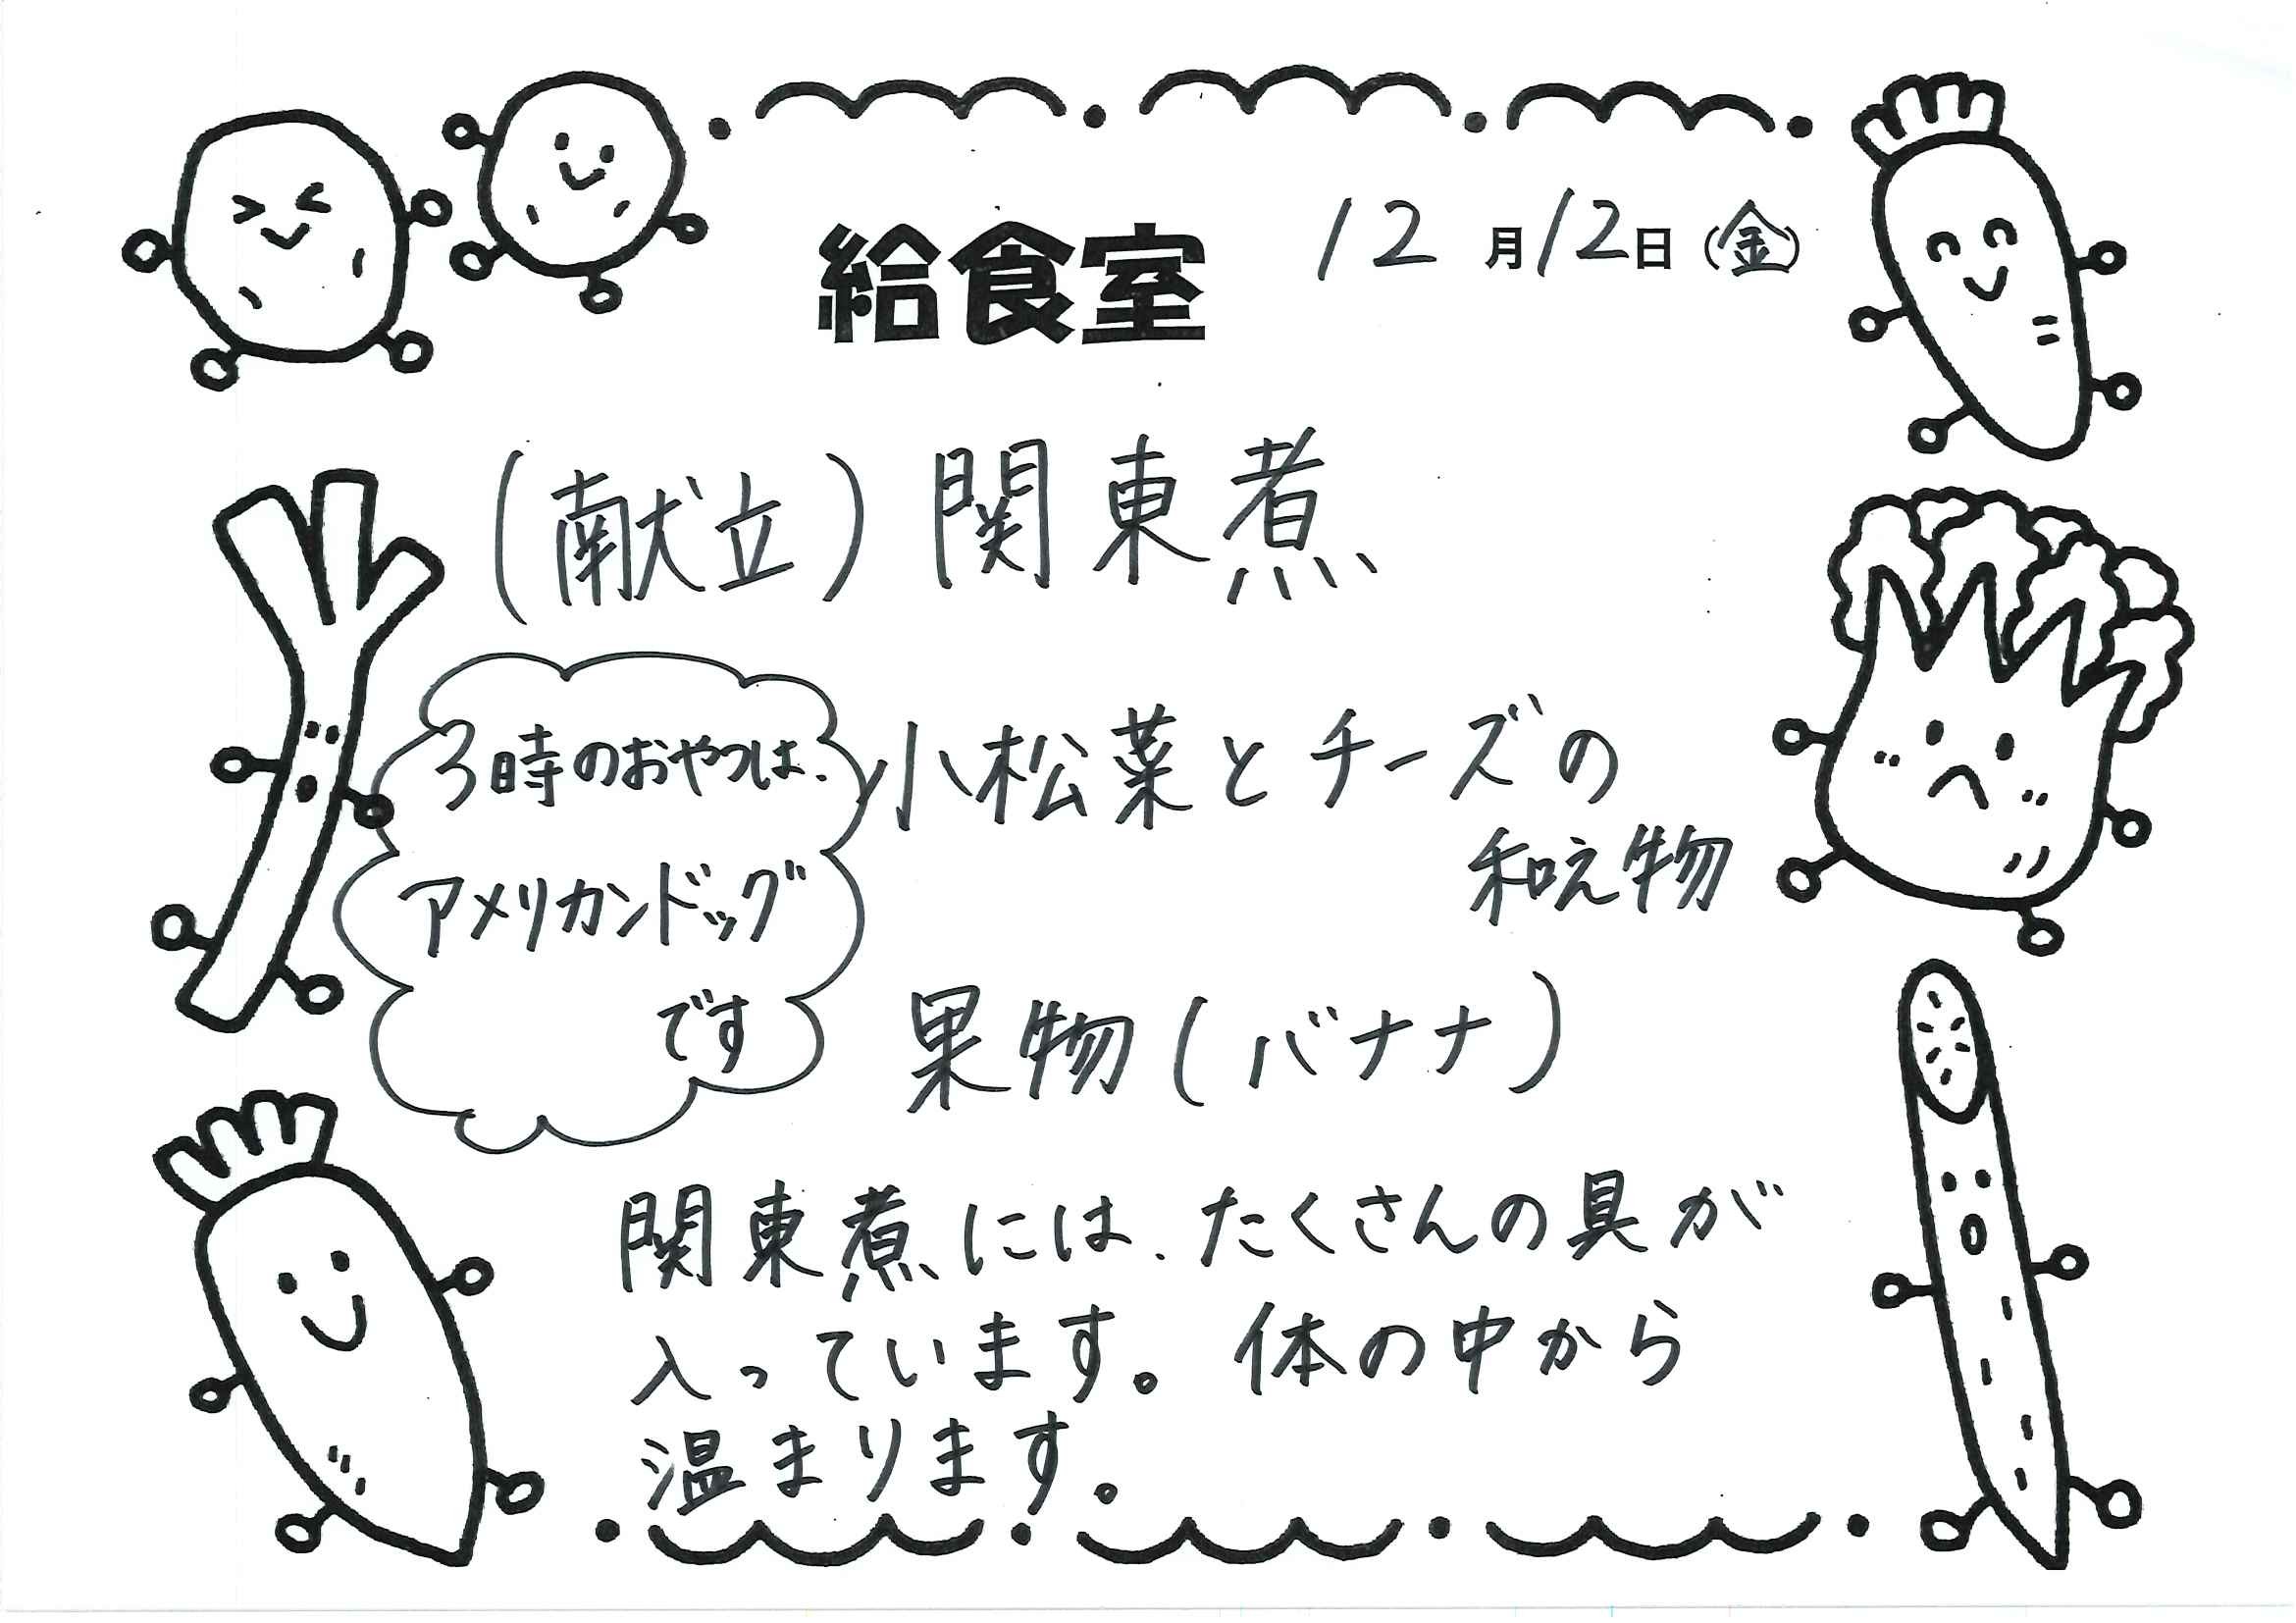 給食室 12月12日(金)
(献立)関東煮
小松菜とチーズの
和え物
果物(バナナ)
3時のおやつは、
アメリカンドッグ
です
関東煮には、たくさんの具が
入っています。体の中から
温まります。